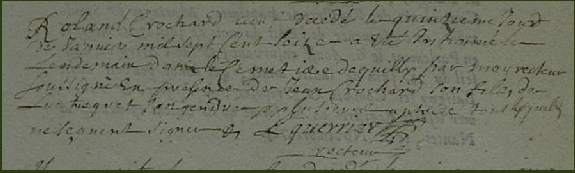 Roland Crochard decedé le quinzieme jour
de Janvier mil sept cent seize a été inhumé le
Lendemain dans le cemetiere de quilly par moy recteur
soussigné En presence de Jean Crochard son fils de
son gendre plusieurs aultres
ne sçavent signer L guerrier
recteur